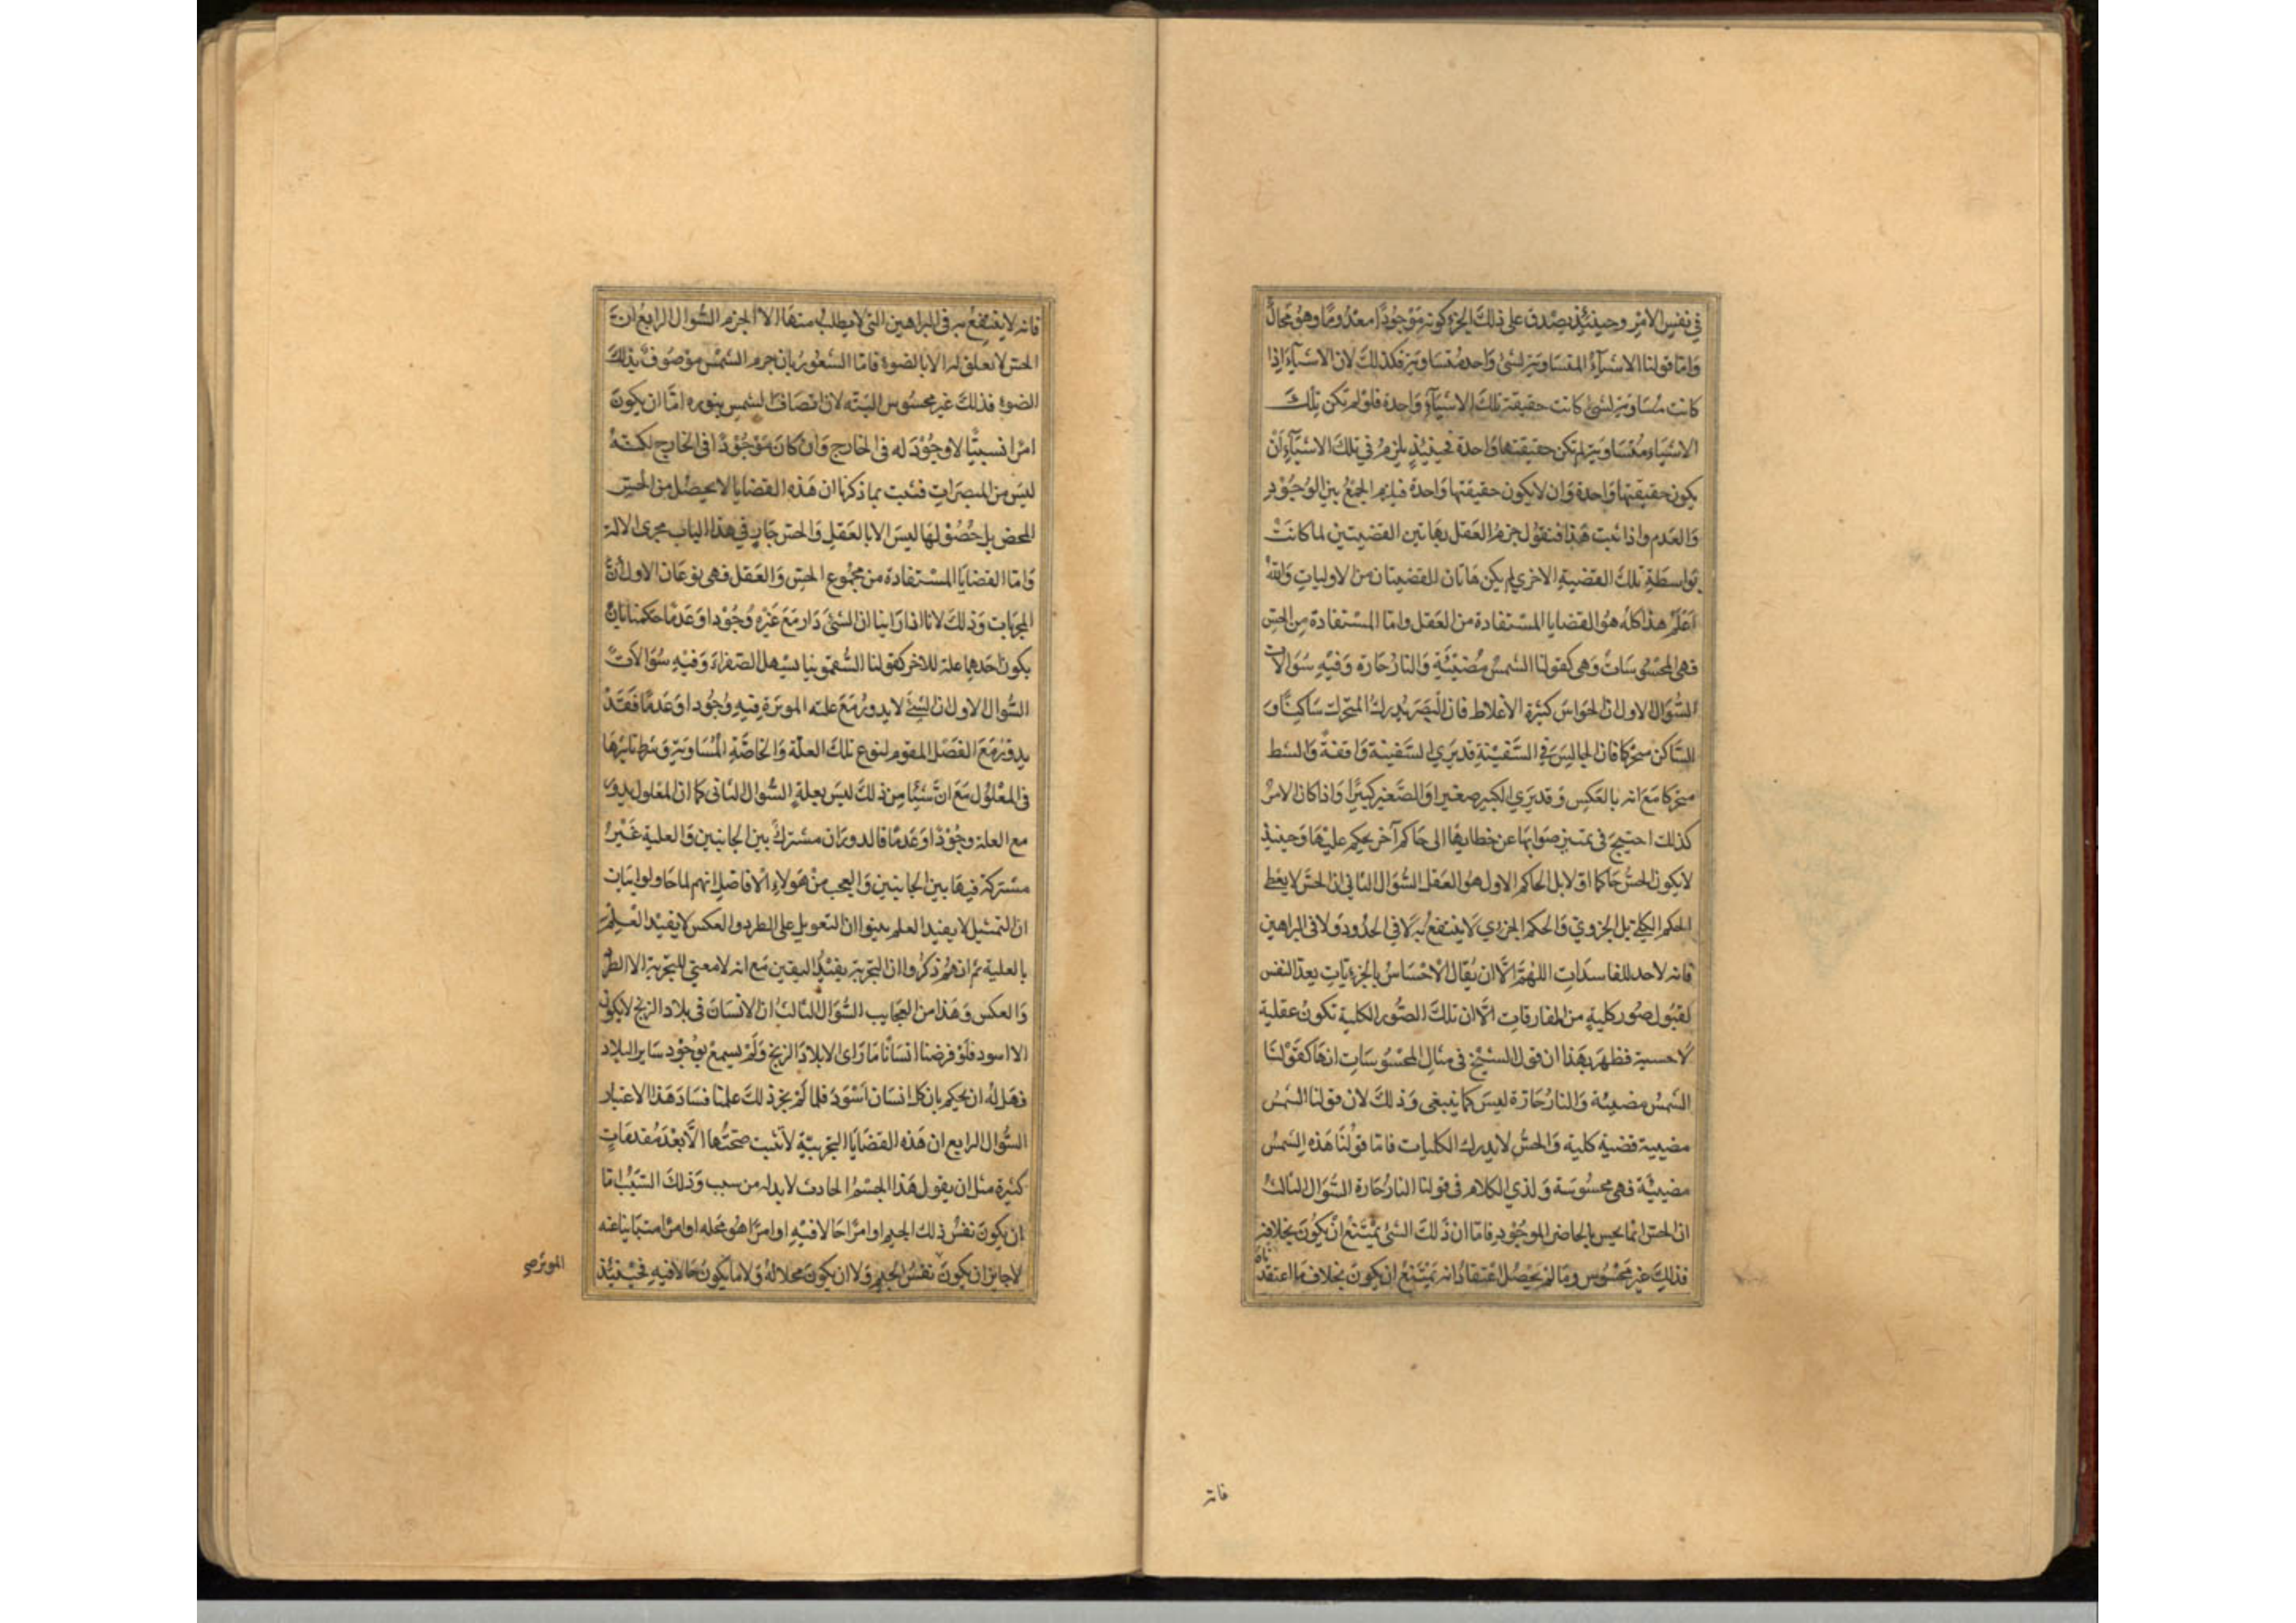 في نفس الامر وحينئذ يصدق على ذلك الجزء كونه موجودا معدوما وهو محال
واما قولنا الاشياء المتساوية لشئ واحد متساوية فكذلك لان الاشياء اذا
كانت مساوية لشئ كانت حقيقة تلك الاشياء واحدة فلو لم تكن تلك
الاشياء متساوية لم تكن حقيقتها واحدة فحينئذ يلزم في تلك الاشياء ان
يكون حقيقتها واحدة وان لا يكون حقيقتها واحدة فيلزم الجمع بين الوجود
والعدم واذا ثبت هذا فنقول جزم العقل بهاتين القضيتين لما كانت
بواسطة تلك القضية الاخرى لم يكن هاتان القضيتان من الاوليات والله
اعلم هذا كله هو القضايا المستفادة من العقل واما المستفادة من الحس
فهي المحسوسات وهي كقولنا الشمس مضيئة والنار حارة وفيه سوالات
السوال الاول ان الحواس كثيرة الاغلاط فان البصر يدرك المتحرك ساكنا و
الساكن متحركا فان الجالس في السفينة قد يرى السفينة واقفة والشط
متحركا مع انه بالعكس وقد يرى الكبير صغيرا والصغير كبيرا واذا كان الامر
كذلك احتيج في تمييز صوابها عن خطايها الى حاكم آخر يحكم عليها وحينئذ
لا يكون الحس حاكما اولا بل الحاكم الاول هو العقل السوال الثاني ان الحس لا يعطي
الحكم الكلي بل الجزوي والحكم الجزوي لا ينتفع به لا في الحدود ولا في البراهين
فانه لا حد للفاسدات اللهم الا ان يقال الاحساس بالجزءيات يعد النفس
لقبول صور كلية من المفارقات الا ان تلك الصور الكلية تكون عقلية
لا حسية فظهر بهذا ان قول الشيخ في مثال المحسوسات انها كقولنا
الشمس مضيئة والنار حارة ليس كما ينبغي وذلك لان قولنا الشمس
مضيية قضية كلية والحس لا يدرك الكليات فاما قولنا هذه الشمس
مضيئة فهي محسوسة ولذي الكلام في قولنا النار حارة السوال الثالث
ان الحس انما يحس بالحاضر الموجود فاما ان ذلك الشئ يمتنع ان يكون بخلافه
فذلك غير محسوس وما لم يحصل اعتقاد انه يمتنع ان يكون بخلاف ما اعتقدناه
فانه
فانه لا ينتفع به في البراهين التي لا يطلب منها الا الجزم السوال الرابع ان
الحس لا تعلق له الا بالضوء فاما الشعور بان جرم الشمس موصوف بذلك
الضوء فذلك غير محسوس البته لان اتصاف الشمس بنوره اما ان يكون
امرا نسبيا لا وجود له في الخارج وان كان موجودا في الخارج لكنه
ليس من المبصرات فثبت بما ذكرنا ان هذه القضايا لا يحصل من الحس
المحض بل حصولها ليس الا بالعقل والحس جار في هذا الباب مجرى الالة
واما القضايا المستفادة من مجموع الحس والعقل فهي نوعان الاول
المجربات وذلك لانا اذا راينا ان الشئ دار مع غيره وجودا وعدما حكمنا بان
يكون احدهما علة للاخر كقولنا السقمونيا يسهل الصفراء وفيه سوالات
السوال الاول ان الشئ لا يدور مع علته الموثرة فيه وجودا وعدما فقد
يدور مع الفصل المقوم لنوع تلك العلة والخاصة المساوية وشرط تاثيرها
في المعلول مع ان شيئا من ذلك ليس بعلة السوال الثاني كما ان المعلول يدور
مع العلة وجودا وعدما فالدوران مشترك بين الجانبين والعلية غير
مشتركة فيها بين الجانبين والعجب من هولاء الافاضل انهم لما حاولوا اثبات
ان التمثيل لا يفيد العلم بينوا ان التعويل على الطرد والعكس لا يفيد العلم
بالعلية ثم انهم ذكروا ان التجربة يفيد اليقين مع انه لا معنى للتجربة الا الطرد
والعكس وهذا من العجايب السوال الثالث ان الانسان في بلاد الزنج لا يكون
الا اسود فلو فرضنا انسانا ما راى الا بلاد الزنج ولم يسمع بوجود ساير البلاد
فهل له ان يحكم بان كل انسان اسود فلما لم يجز ذلك علمنا فساد هذا الاعتبار
السوال الرابع ان هذه القضايا التجربية لا تثبت صحتها الا بعد مقدمات
كثيرة مثل ان يقول هذا الجسم الحادث لا بد له من سبب وذلك السبب اما
ان يكون نفس ذلك الجسم او امرا حالا فيه او امرا هو محله او امرا متباينا عنه
لا جايز ان يكون نفس الجسم ولا ان يكون محلا له ولا ما يكون حالا فيه فحينئذ